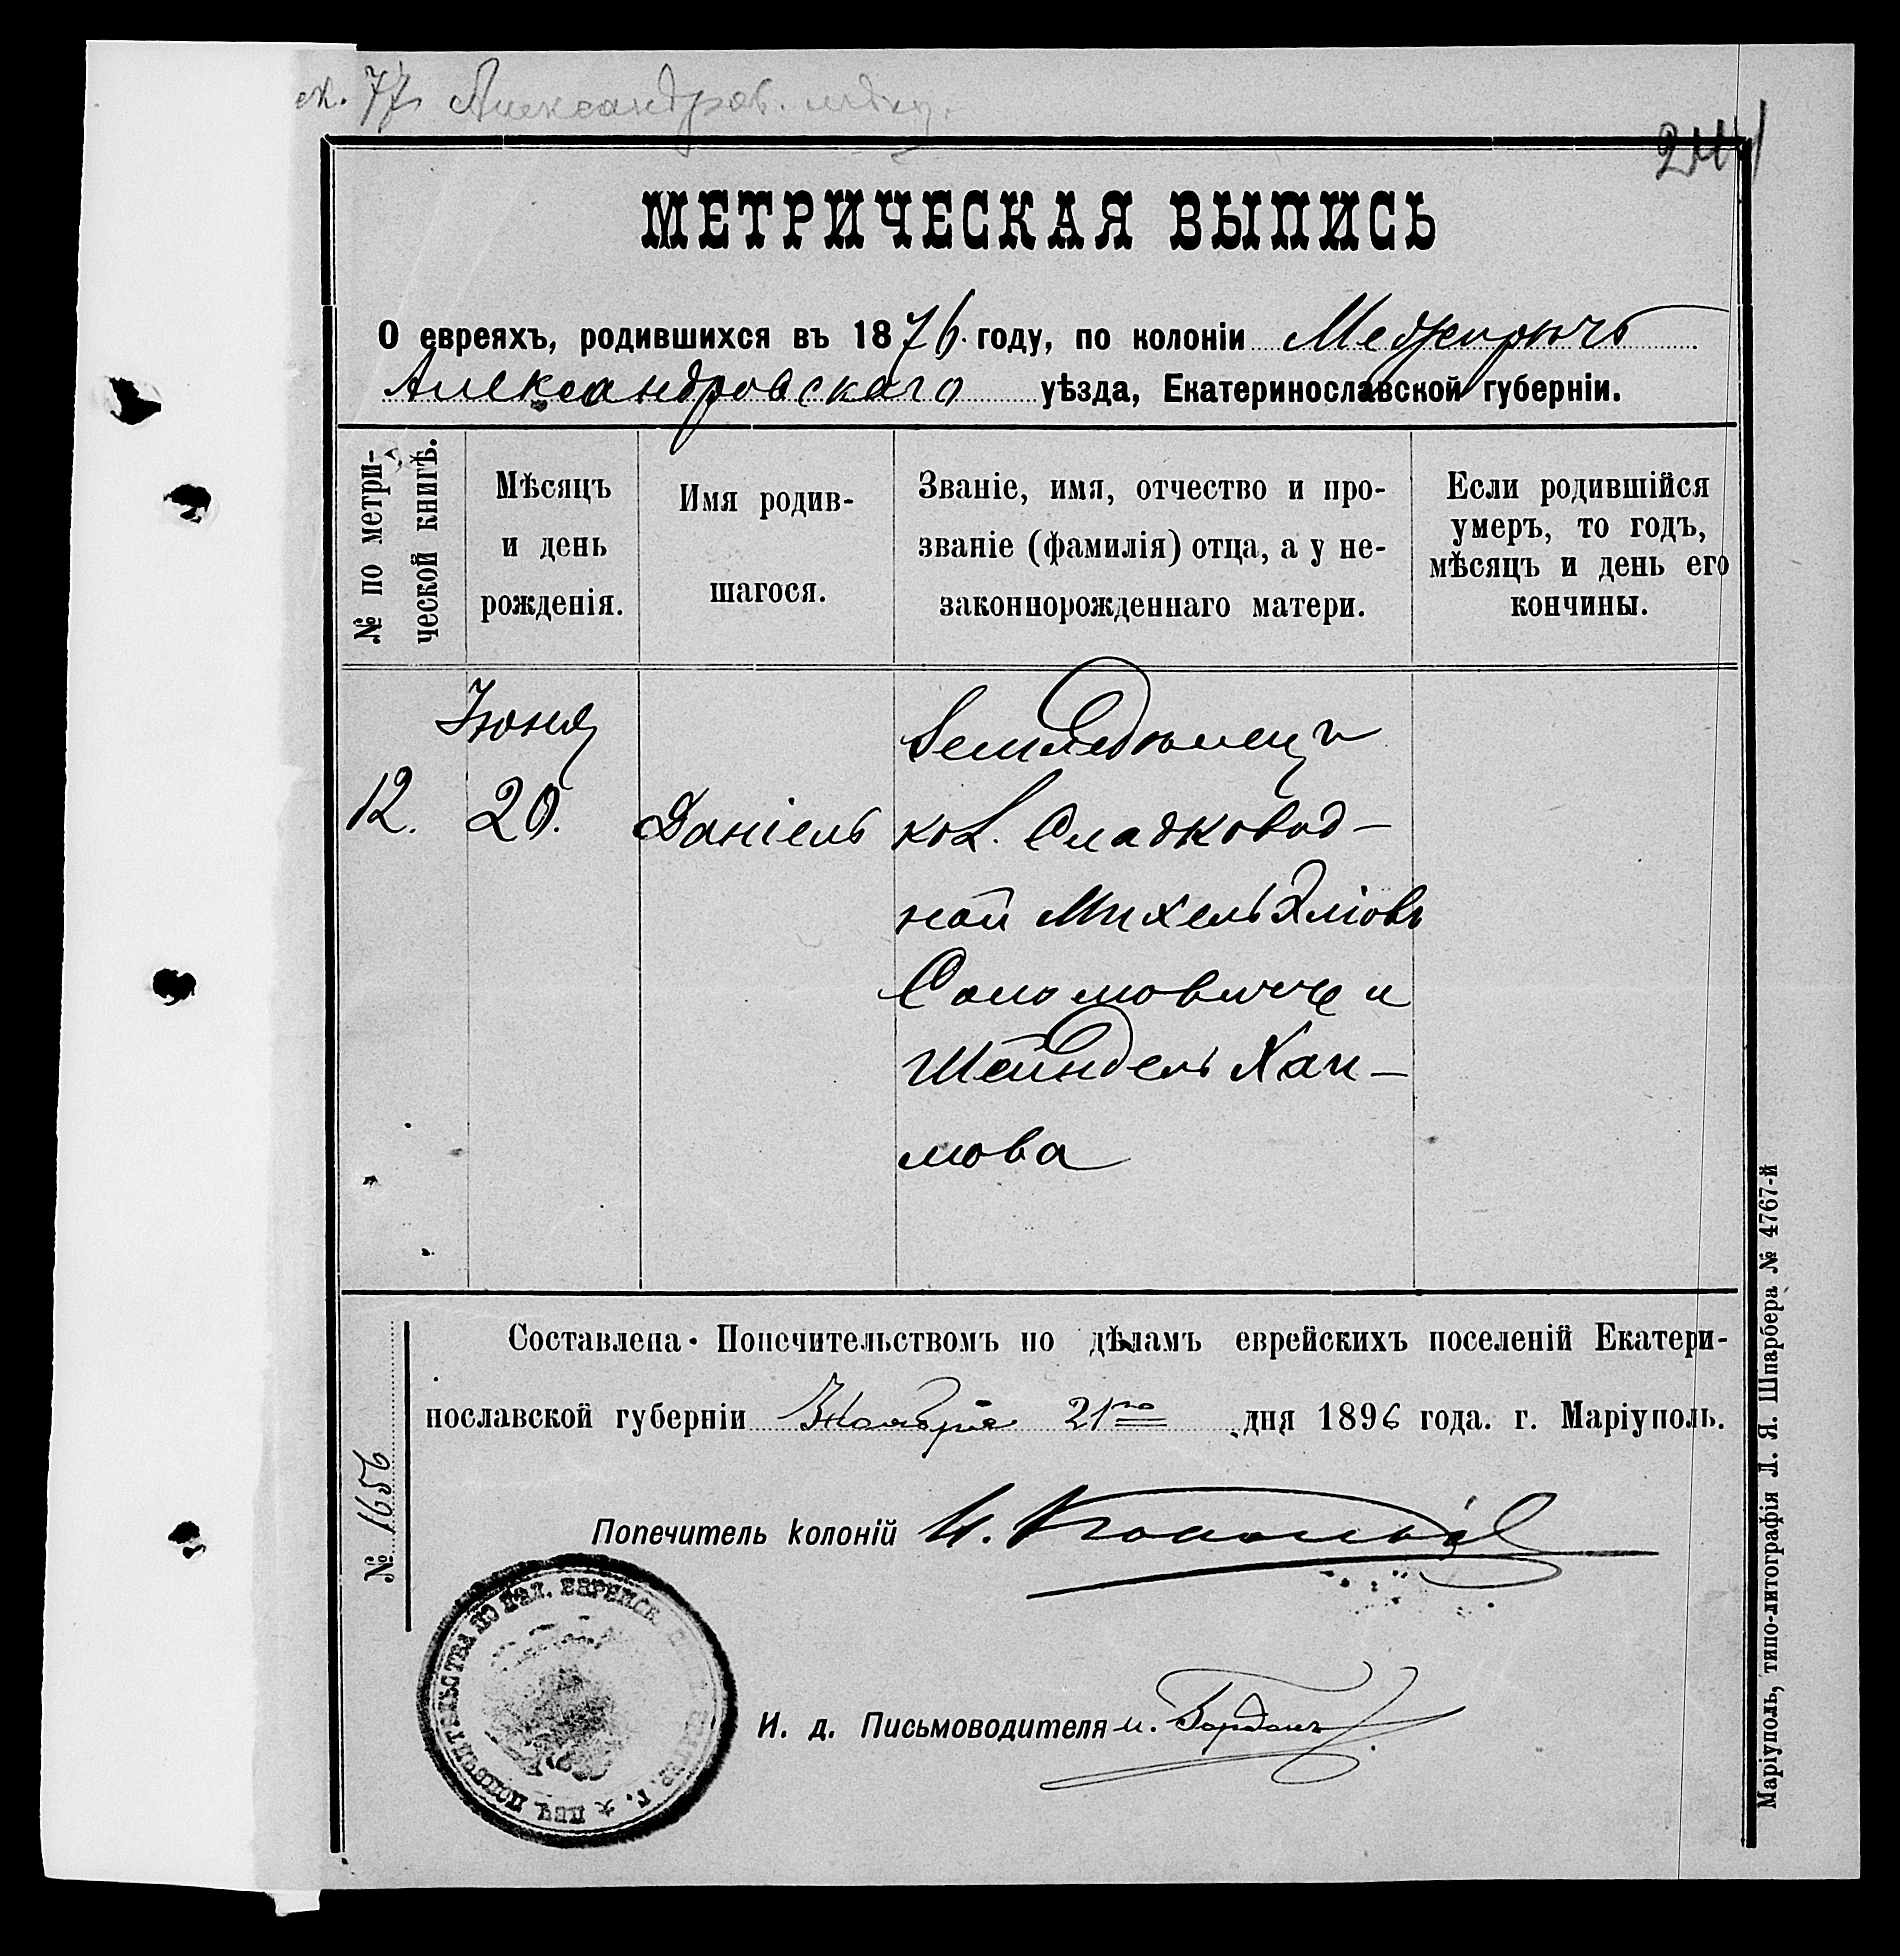 77 Александров.
МЕТРИЧЕСКАЯ ВЫПИСЬ
О евреяхъ, родившихся въ 1876 году, по колоніи Междурѣчь
Александровскаго уѣзда, Екатеринославской губерніи.
№ по метри-
ческой книгѣ.
Мѣсяцъ
и день
рожденія.
Имя родив-
шагося.
Званіе, имя, отчество и про-
званіе (фамилія) отца, а у не-
законнорожденнаго матери.
Если родившійся
умеръ, то годъ,
мѣсяцъ и день его
кончины.
12.
Іюня
20.
Даніель
Земледѣлецъ
кол. Сладковод-
ной Михель Эліовъ
Соломовичъ и
Шейндель Хаи-
мова
Составлена Попечительствомъ по дѣламъ еврейскихъ поселеній Екатери-
нославской губерніи Ноября 21го дня 1896 года. г. Маріуполь.
№ 1656
Попечитель колоній И.
И. д. Письмоводителя
ПЕЧ. ПОПЕЧИТЕЛЬСТВА ПО ДѢЛ. ЕВРЕЙСК.
Маріуполь, типо-литографія Л. Я. Шпарбера № 4767-й